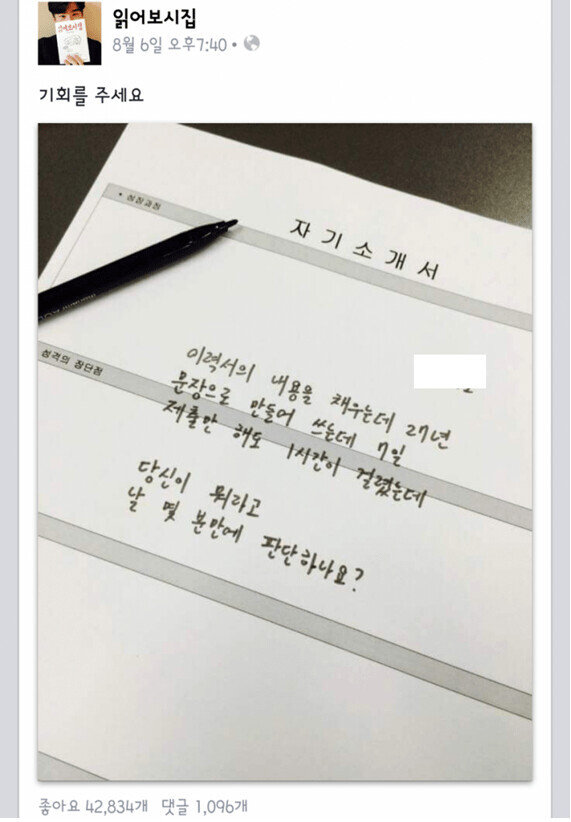 읽어보시집
8월 6일 오후7:40
기회를 주세요
• 성장과정
자 기 소 개 서
성격의 장단점
이력서의 내용을 채우는데 27년
문장으로 만들어 쓰는데 7일
제출만 해도 1시간이 걸렸는데
당신이 뭐라고
날 몇 분만에 판단하나요?
좋아요 42,834개 댓글 1,096개